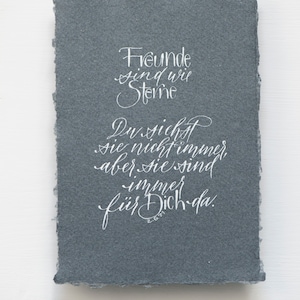 Freunde
sind wie
Sterne
Du siehst
sie nicht immer,
aber sie sind
immer
für Dich da.